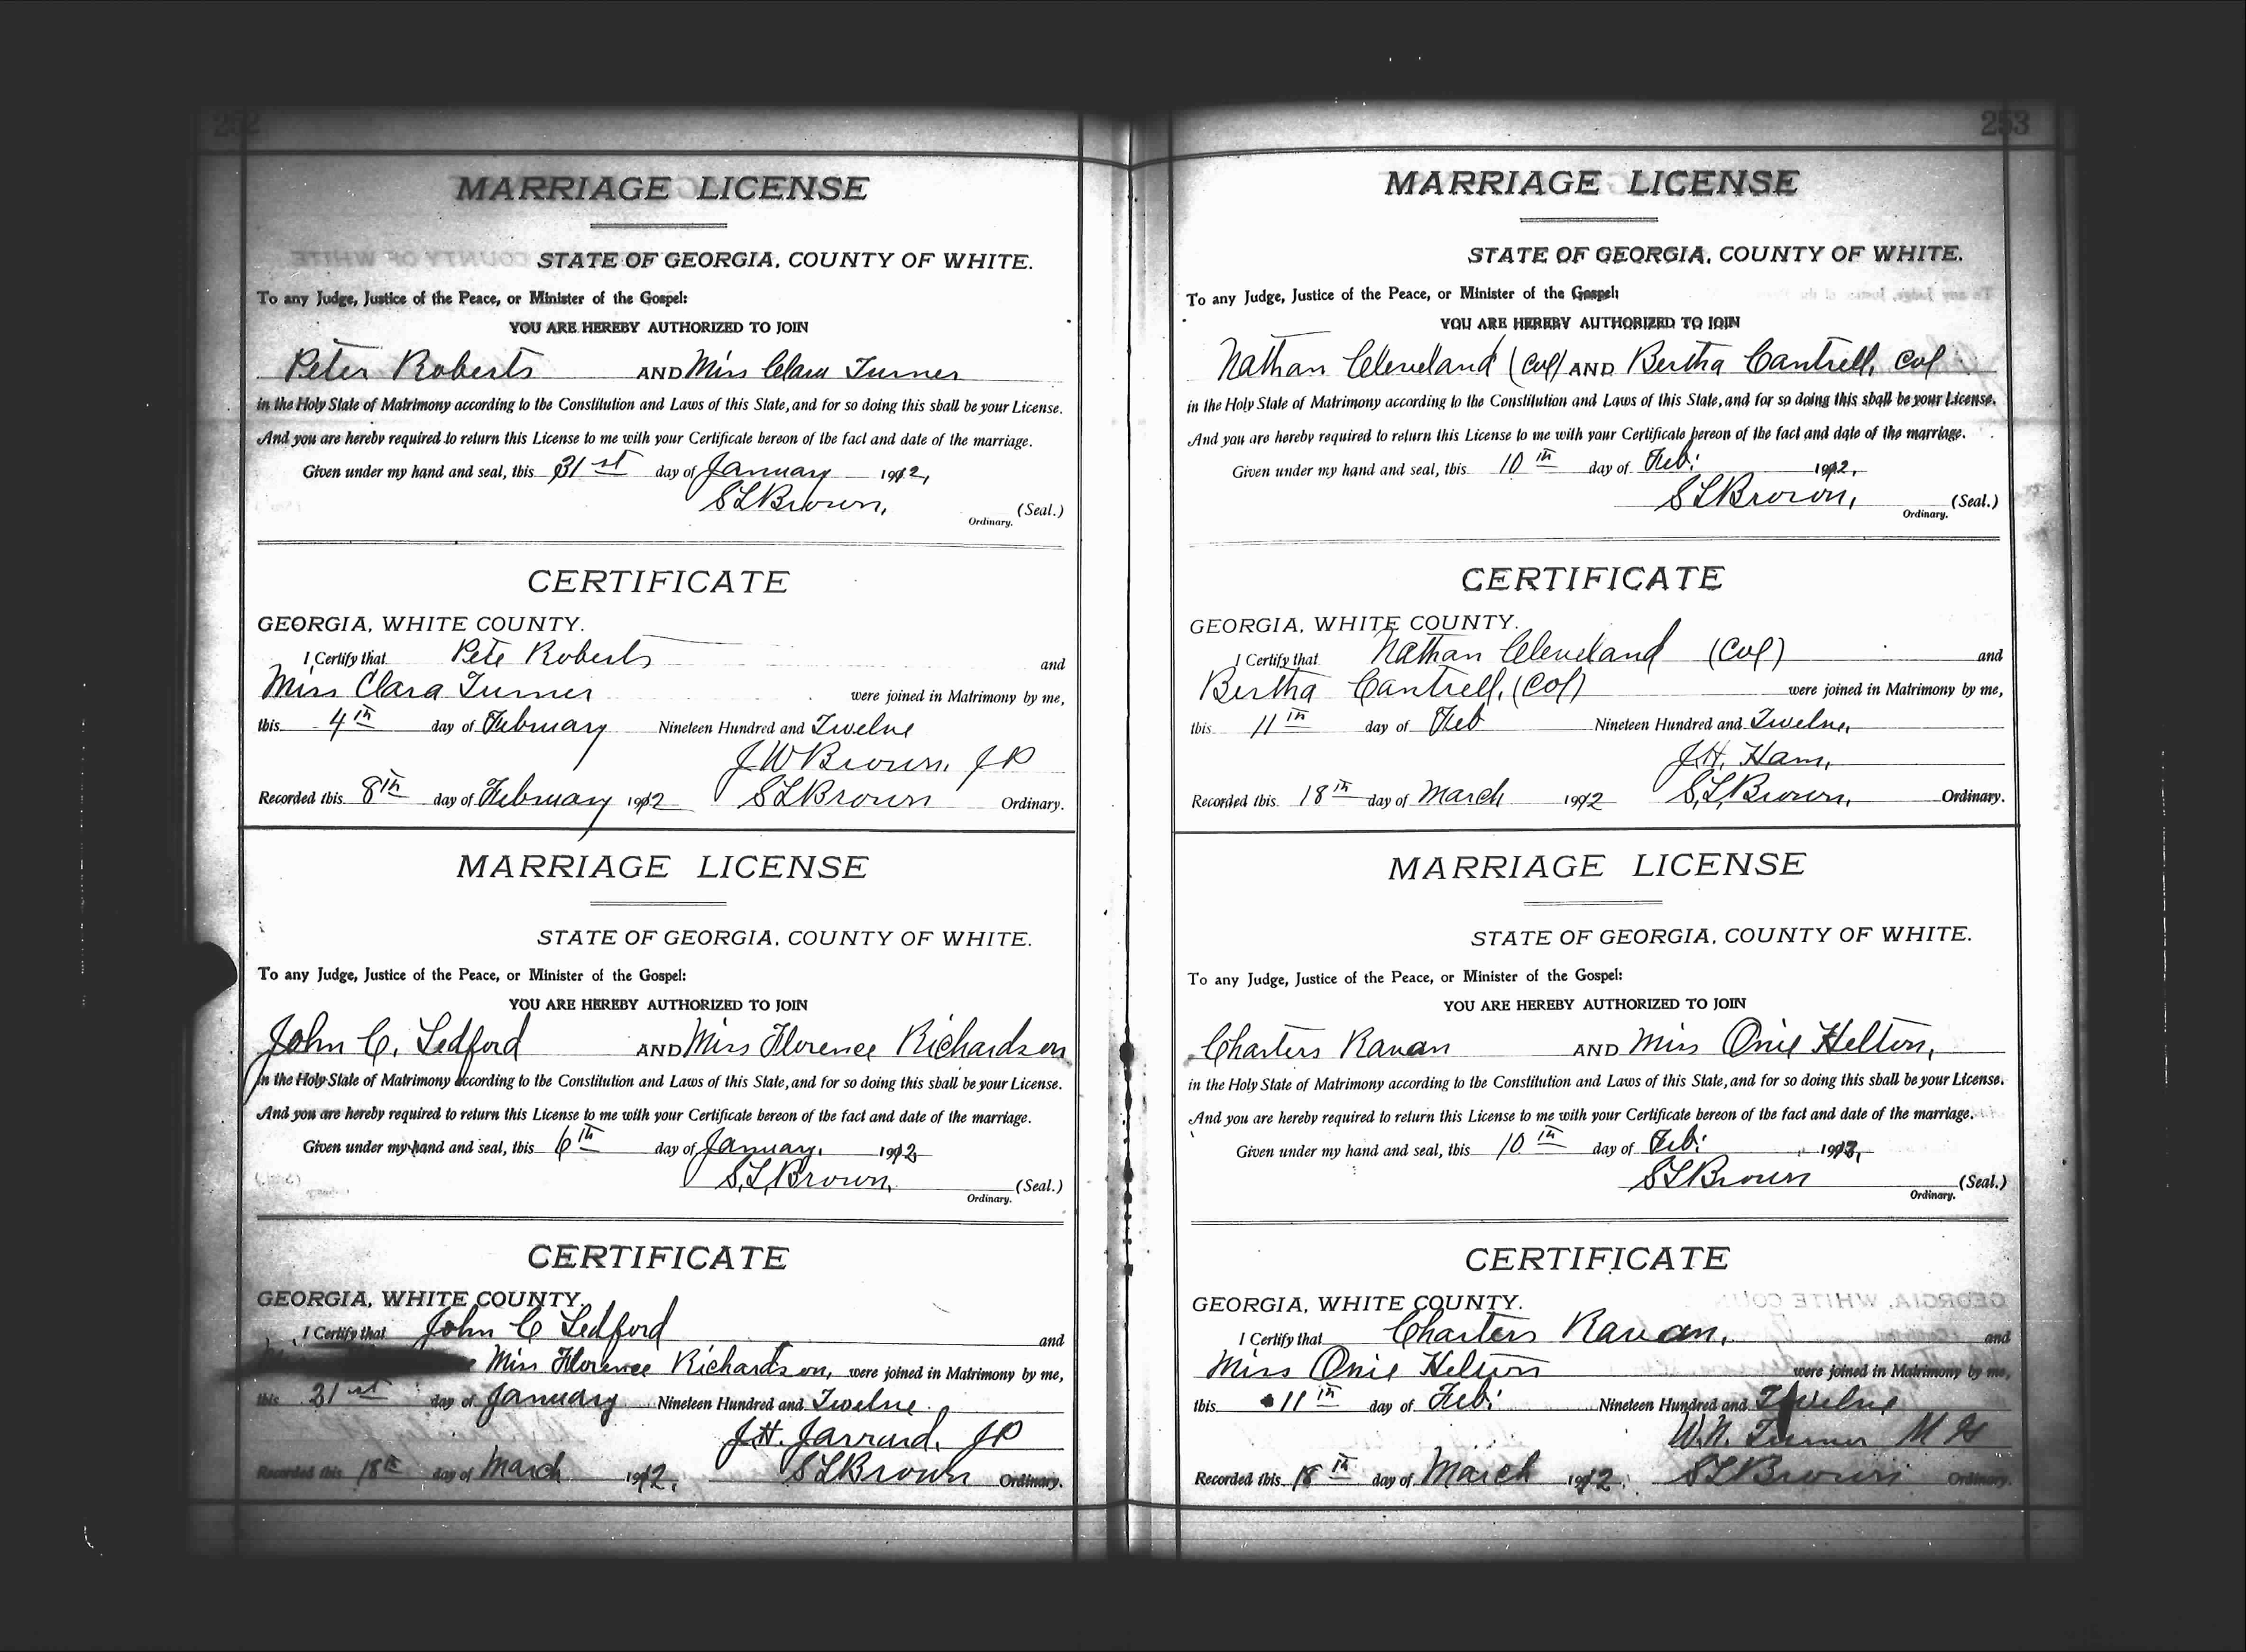 252
MARRIAGE LICENSE
STATE OF GEORGIA, COUNTY OF WHITE.
To any Judge, Justice of the Peace, or Minister of the Gospel:
YOU ARE HEREBY AUTHORIZED TO JOIN
Peter Roberts AND Miss Clara Turner
in the Holy State of Matrimony according to the Constitution and Laws of this State, and for so doing this shall be your License.
And you are hereby required to return this License to me with your Certificate hereon of the fact and date of the marriage.
Given under my hand and seal, this 31st day of January 1912,
S L Brown, (Seal.)
Ordinary.
CERTIFICATE
GEORGIA, WHITE COUNTY.
I Certify that Pete Roberts and
Miss Clara Turner were joined in Matrimony by me,
this 4th day of February Nineteen Hundred and Twelve
J W Brown, J P
Recorded this 8th day of February 1912 S L Brown Ordinary.
MARRIAGE LICENSE
STATE OF GEORGIA, COUNTY OF WHITE.
To any Judge, Justice of the Peace, or Minister of the Gospel:
YOU ARE HEREBY AUTHORIZED TO JOIN
John C. Ledford AND Miss Florence Richardson
in the Holy State of Matrimony according to the Constitution and Laws of this State, and for so doing this shall be your License.
And you are hereby required to return this License to me with your Certificate hereon of the fact and date of the marriage.
Given under my hand and seal, this 6th day of January, 1912
S. L. Brown, (Seal.)
Ordinary.
CERTIFICATE
GEORGIA, WHITE COUNTY.
I Certify that John C Ledford and
Miss Florence Richardson, were joined in Matrimony by me,
this 31st day of January Nineteen Hundred and Twelve.
J. H. Jarrard, J P
Recorded this 18th day of March 1912, S L Brown Ordinary.
253
MARRIAGE LICENSE
STATE OF GEORGIA, COUNTY OF WHITE.
To any Judge, Justice of the Peace, or Minister of the Gospel:
YOU ARE HEREBY AUTHORIZED TO JOIN
Nathan Cleveland (Col) AND Bertha Cantrell, Col
in the Holy State of Matrimony according to the Constitution and Laws of this State, and for so doing this shall be your License.
And you are hereby required to return this License to me with your Certificate hereon of the fact and date of the marriage.
Given under my hand and seal, this 10th day of Feb: 1912,
S L Brown, (Seal.)
Ordinary.
CERTIFICATE
GEORGIA, WHITE COUNTY.
I Certify that Nathan Cleveland (Col) and
Bertha Cantrell, (Col) were joined in Matrimony by me,
this 11th day of Feb Nineteen Hundred and Twelve,
J. H. Ham,
Recorded this 18th day of March 1912 S. L. Brown, Ordinary.
MARRIAGE LICENSE
STATE OF GEORGIA, COUNTY OF WHITE.
To any Judge, Justice of the Peace, or Minister of the Gospel:
YOU ARE HEREBY AUTHORIZED TO JOIN
Charters Ravan AND Miss Onie Helton,
in the Holy State of Matrimony according to the Constitution and Laws of this State, and for so doing this shall be your License.
And you are hereby required to return this License to me with your Certificate hereon of the fact and date of the marriage.
Given under my hand and seal, this 10th day of Feb: 1912,
S L Brown (Seal.)
Ordinary.
CERTIFICATE
GEORGIA, WHITE COUNTY.
I Certify that Charters Ravan, and
Miss Onie Helton were joined in Matrimony by me,
this 11th day of Feb: Nineteen Hundred and Twelve
W. N. Turner M G
Recorded this 18th day of March 1912. S L Brown Ordinary.